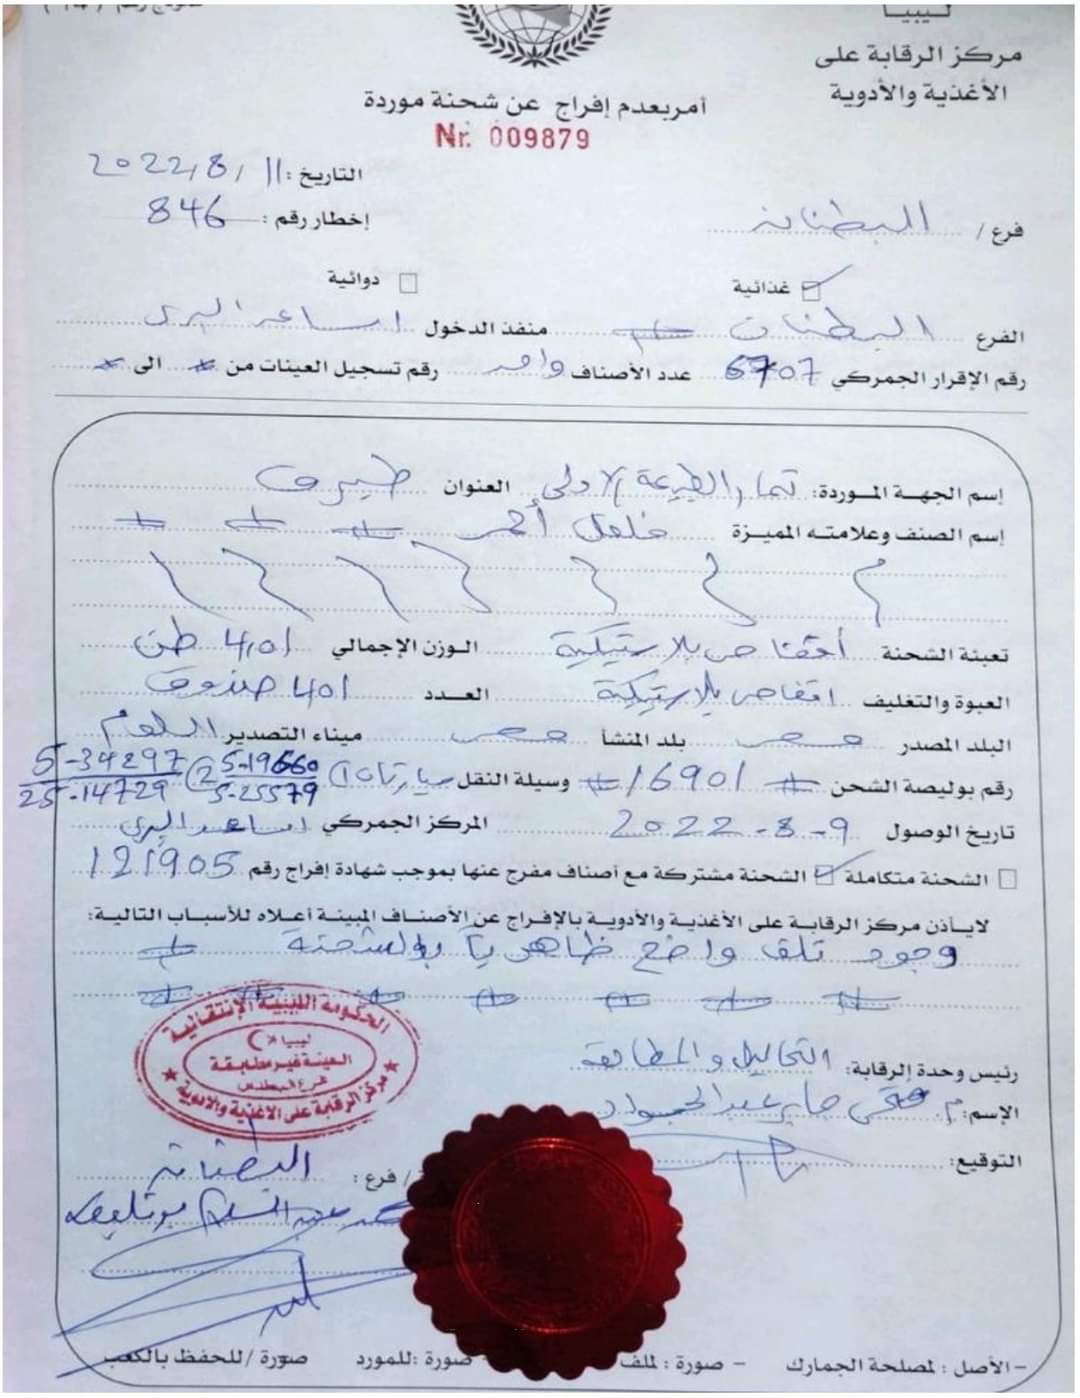 ليبيا
مركز الرقابة على
الأغذية والأدوية
أمر بعدم إفراج عن شحنة موردة
Nr. 009879
التاريخ : 11 / 8 / 2022
إخطار رقم : 846
فرع / البطنان
غذائية
دوائية
الفرع البطنان منفذ الدخول امساعد البري
رقم الإقرار الجمركي 6707 عدد الأصناف واحد رقم تسجيل العينات من الى
إسم الجهة الموردة: الأولى العنوان طبرق
إسم الصنف وعلامته المميزة فلفل أحمر
تعبئة الشحنة أقفاص بلاستيكية الوزن الإجمالي 4,01 طن
العبوة والتغليف اقفاص بلاستيكية العدد 401 صندوق
البلد المصدر مصر بلد المنشأ مصر ميناء التصدير السلوم
رقم بوليصة الشحن 16901 وسيلة النقل سيارتان 1 5-19660 5-25579 2 5-34297 25-14729
تاريخ الوصول 9-8-2022 المركز الجمركي امساعد البري
الشحنة متكاملة الشحنة مشتركة مع أصناف مفرج عنها بموجب شهادة إفراج رقم 121905
لايأذن مركز الرقابة على الأغذية والأدوية بالإفراج عن الأصناف المبينة أعلاه للأسباب التالية:
وجود تلف واضح ظاهرياً بالشحنة
الحكومة الليبية الإنتقالية
ليبيا
العينة غير مطابقة
مركز الرقابة على الاغذية والادوية
رئيس وحدة الرقابة: التحاليل والمطابقة
الإسم: م. فتحي جابر عبدالجواد
التوقيع:
/ فرع : البطنان
- الأصل : لمصلحة الجمارك - صورة : لملف - صورة :للمورد صورة /للحفظ بالكعب